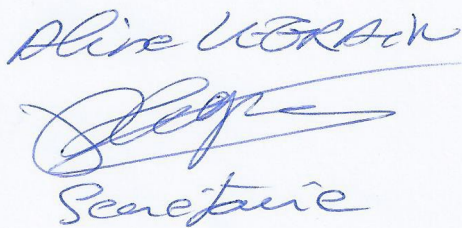 Aline LEGRAIN
Secrétaire